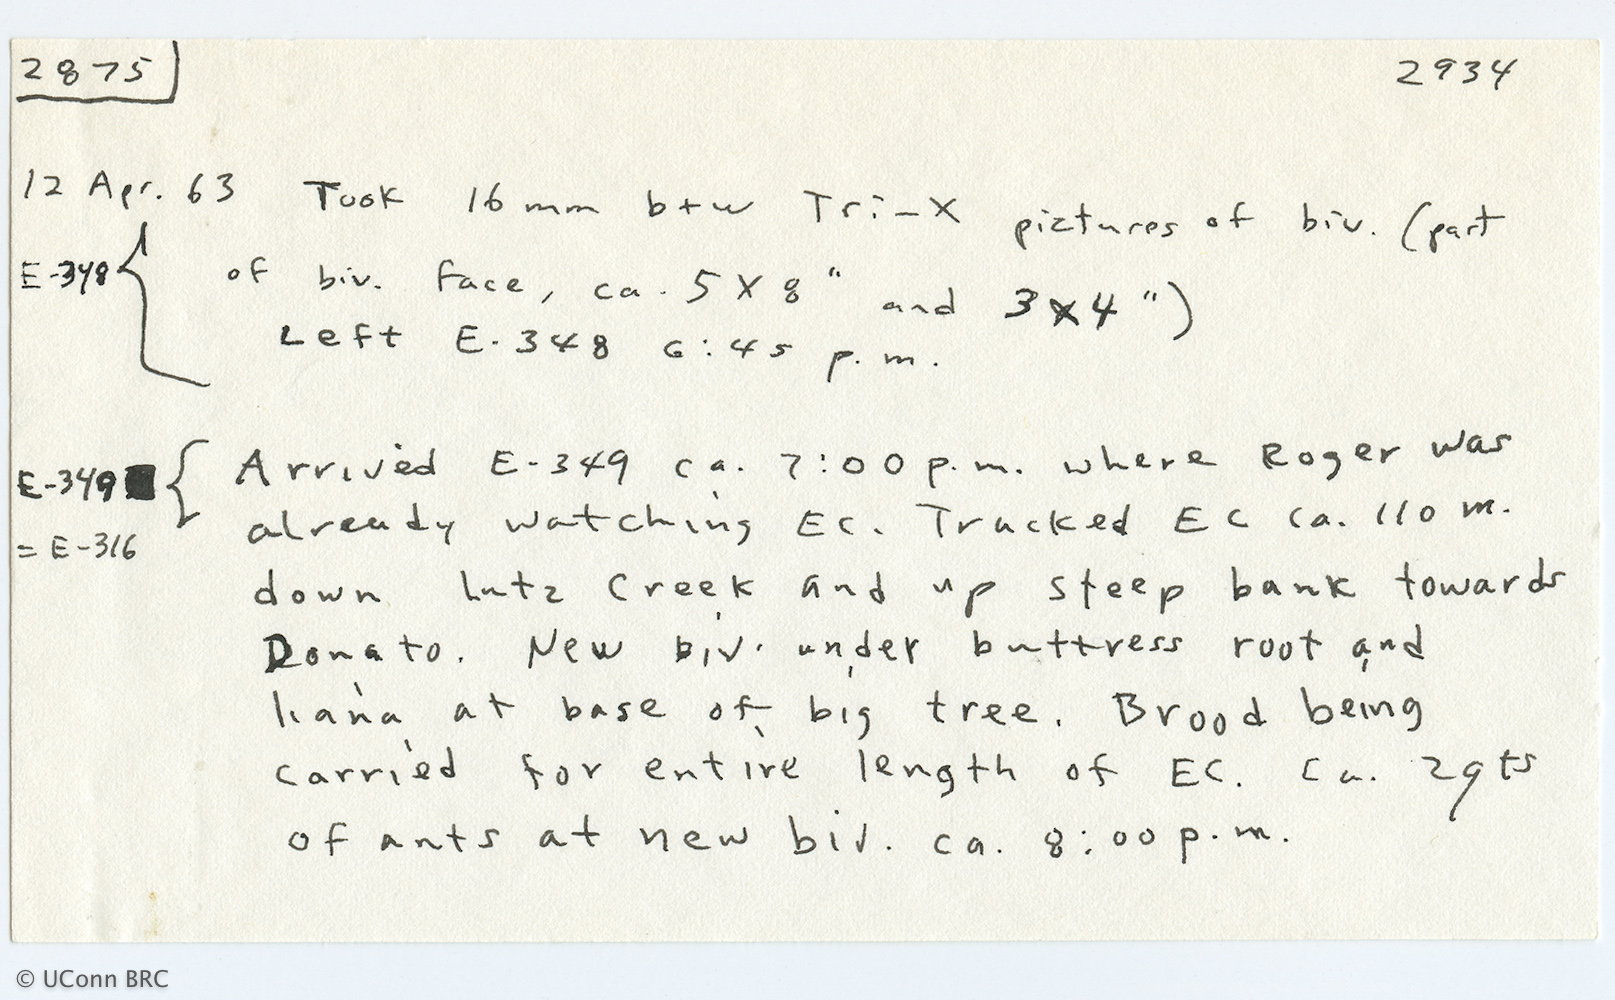 2875 2934
12 Apr. 63 Took 16 mm b+w Tri-X pictures of biv. (part
E-348 of biv. face, ca. 5 X 8" and 3 X 4")
Left E-348 6:45 p.m.
E-349 Arrived E-349 ca. 7:00 p.m. where Roger was
already watching EC. Tracked EC ca. 110 m.
= E-316
down Lutz Creek and up steep bank towards
Donato. New biv. under buttress root and
liana at base of big tree. Brood being
carried for entire length of EC. Ca. 2qts
of ants at new biv. ca. 8:00 p.m.
© UConn BRC